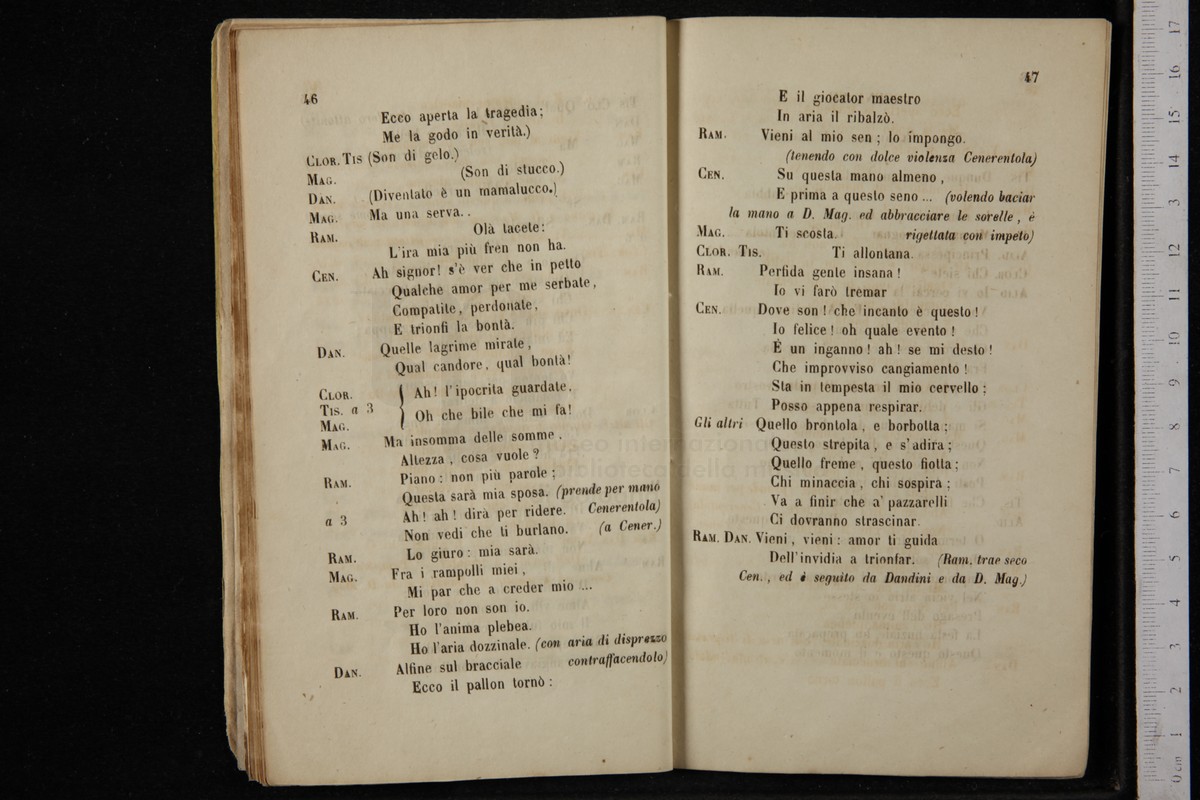 46
Ecco aperta la tragedia;
Me la godo in verità.)
CLOR. TIS (Son di gelo.)
MAG. (Son di stucco.)
DAN. (Diventato è un mamalucco.)
MAG. Ma una serva..
RAM. Olà tacete:
L'ira mia più fren non ha.
CEN. Ah signor! s'è ver che in petto
Qualche amor per me serbate,
Compatite, perdonate,
E trionfi la bontà.
DAN. Quelle lagrime mirate,
Qual candore, qual bontà!
CLOR. Ah! l'ipocrita guardate.
TIS. a 3 Oh che bile che mi fa!
MAG.
MAG. Ma insomma delle somme.
Altezza, cosa vuole?
RAM. Piano: non più parole;
Questa sarà mia sposa. (prende per mano
a 3 Ah! ah! dirà per ridere. Cenerentola)
Non vedi che ti burlano. (a Cener.)
RAM. Lo giuro: mia sarà.
MAG. Fra i rampolli miei,
Mi par che a creder mio ...
RAM. Per loro non son io.
Ho l'anima plebea.
Ho l'aria dozzinale. (con aria di disprezzo
DAN. Alfine sul bracciale contraffacendolo)
Ecco il pallon tornò:
47
E il giocator maestro
In aria il ribalzò.
RAM. Vieni al mio sen; lo impongo.
(tenendo con dolce violenza Cenerentola)
CEN. Su questa mano almeno,
E prima a questo seno ... (volendo baciar
la mano a D. Mag. ed abbracciare le sorelle, è
MAG. Ti scosta. rigettata con impeto)
CLOR. TIS. Ti allontana.
RAM. Perfida gente insana!
Io vi farò tremar
CEN. Dove son! che incanto è questo!
Io felice! oh quale evento!
È un inganno! ah! se mi desto!
Che improvviso cangiamento!
Sta in tempesta il mio cervello;
Posso appena respirar.
Gli altri Quello brontola, e borbotta;
Questo strepita, e s'adira;
Quello freme, questo fiotta;
Chi minaccia, chi sospira;
Va a finir che a' pazzarelli
Ci dovranno strascinar.
RAM. DAN. Vieni, vieni: amor ti guida
Dell'invidia a trionfar. (Ram. trae seco
Cen., ed è seguito da Dandini e da D. Mag.)
museo internazionale
biblioteca della musica
0 cm 1 2 3 4 5 6 7 8 9 10 11 12 13 14 15 16 17